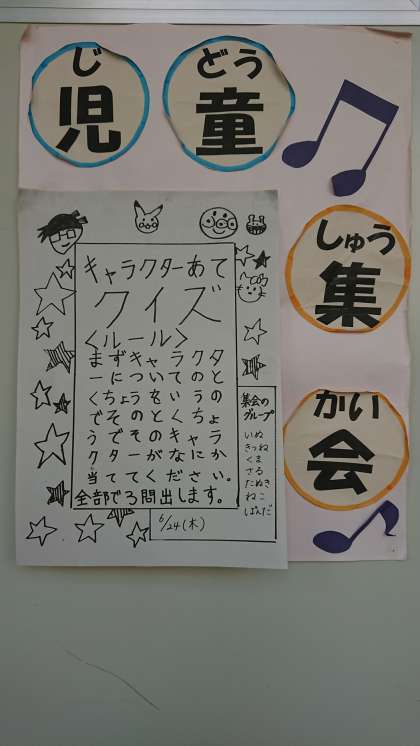 じどう
児童
しゅう
集
かい
会
キャラクターあて
クイズ
<ルール>
まずキャラクタ
ーについてのと
くちょうをいうの
でそのとくちょ
うでそのキャラ
クターがなにか
当ててください。
全部で3問出します。
集会の
グループ
いぬ
きつね
くま
さる
たぬき
ねこ
ぱんだ
6/24(木)